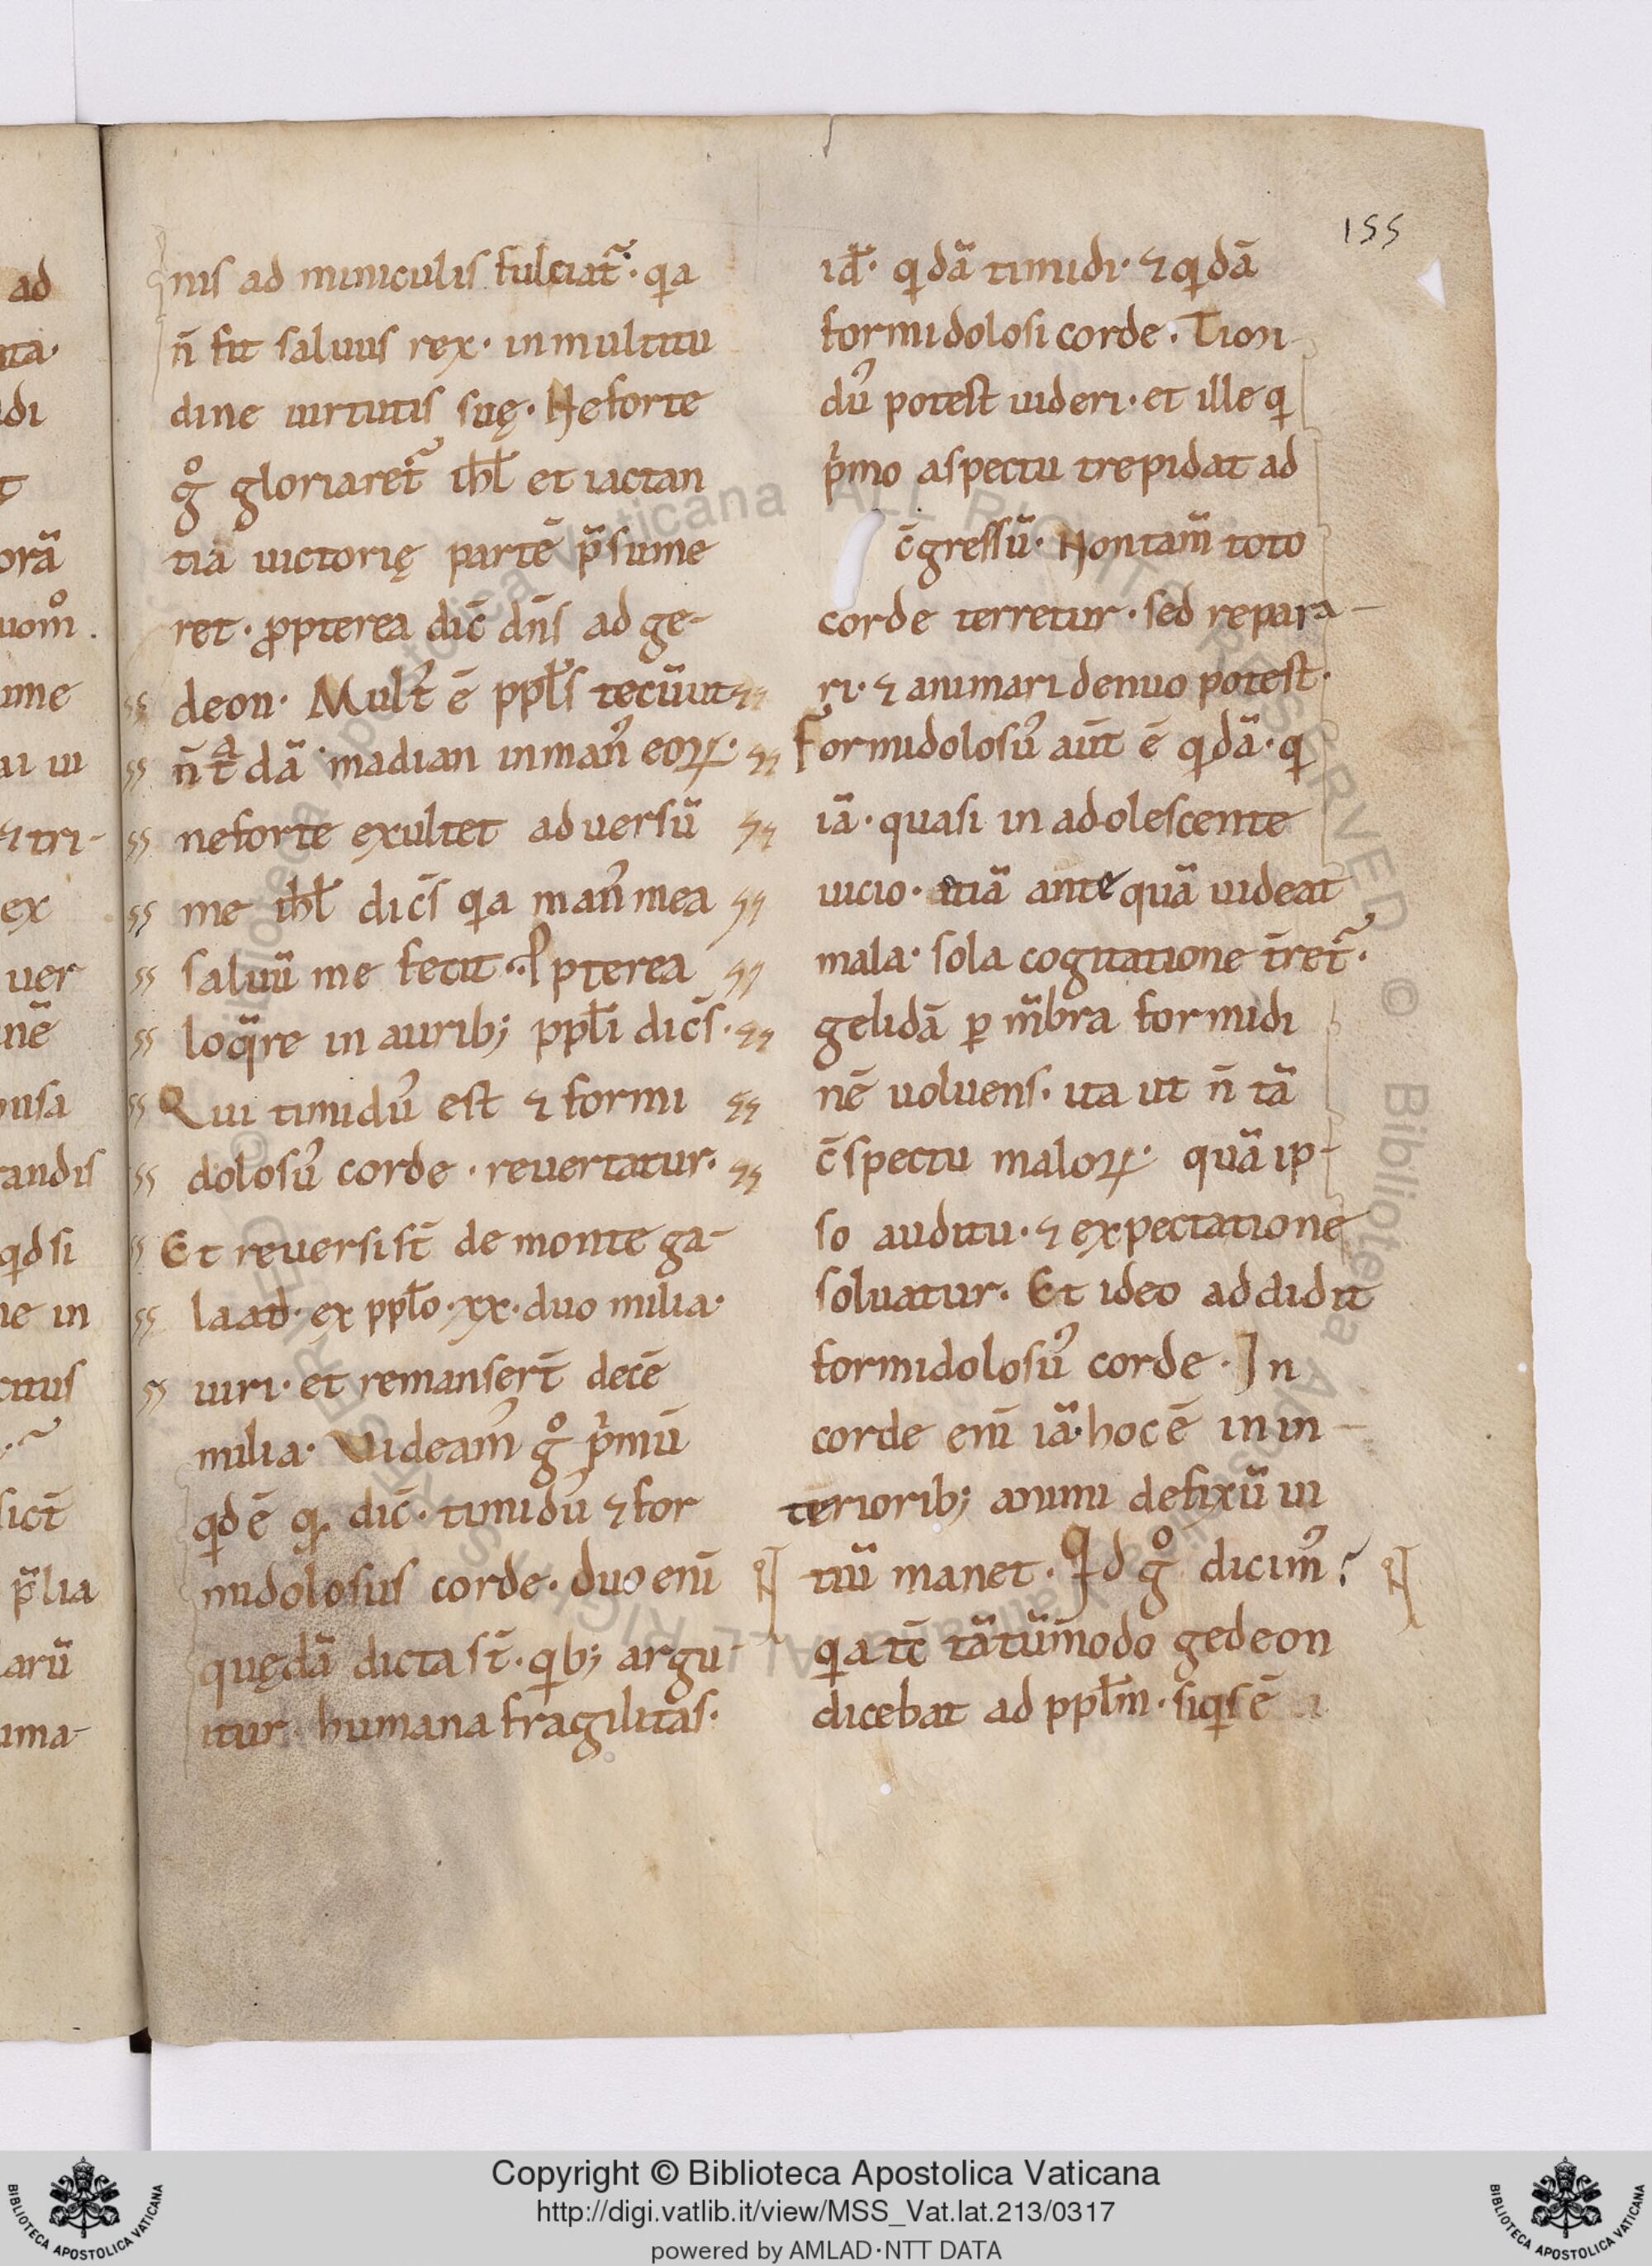 155
nis ad miniculis fulciat᷑· qͥa
n̄ fit saluus rex· inmultitu
dine uirtutis suę· Neforte
gͦ gloriaret᷑ ihl̄ et iactan
tia uictorię partē p̄sume
ret· ꝓpterea dic̄ dn̄s ad ge-
deon· Mult᷒ ē ppl̄s tecū ut
n̄ tͣdā madian inman᷒ eoꝝ·
neforte exultet aduersū
me ihl̄ dic̄s qͥa man᷒ mea
saluū me fecit· Ꝓpterea
loq̄re in aurib; ppl̄i dic̄s·
Qui timid᷒ est ⁊ formi
dolos᷒ corde · reuertatur·
Et reuersi st̄ de monte ga-
laad· ex ppl̄o· xx· duo milia·
uiri· et remanser̄t decē
milia· Uideam᷒ gͦ pͥmū
qd ē ꝙ dic̄· timid᷒ ⁊ for
midolosus corde· duo enī
quędā dicta st̄· qͥb; argu-
itur· humana fragilitas·
id᷒· qdā timidi· ⁊ qdā
formidolosi corde· Timi-
d᷒ potest uideri· et ille q
pͥmo aspectu trepidat ad
c̄gressū· Non tam̄ toto
corde terretur· sed repara-
ri· ⁊ animari denuo potest·
Formidolos᷒ aūt ē qdā· q
iā· quasi in adolescente
uicio· etiā ante quā uideat
mala· sola cogitatione t̄ret᷑·
gelidā ꝑ m̄bra formidi
nē uoluens· ita ut n̄ tā
c̄spectu maloꝝ· quā ip-
so auditu· ⁊ expectatione
soluatur· Et ideo addidit
formidolos᷒ corde· In
corde enī iā· hoc ē in in-
teriorib; animi defixū ui
tiū manet· Qͥd gͦ dicim᷒?
qͥa tc̄ tātūmodo gedeon
dicebat ad ppl̄m· siqͥs ē
Copyright © Biblioteca Apostolica Vaticana
http://digi.vatlib.it/view/MSS_Vat.lat.213/0317
powered by AMLAD·NTT DATA
BIBLIOTECA APOSTOLICA VATICANA
BIBLIOTECA APOSTOLICA VATICANA